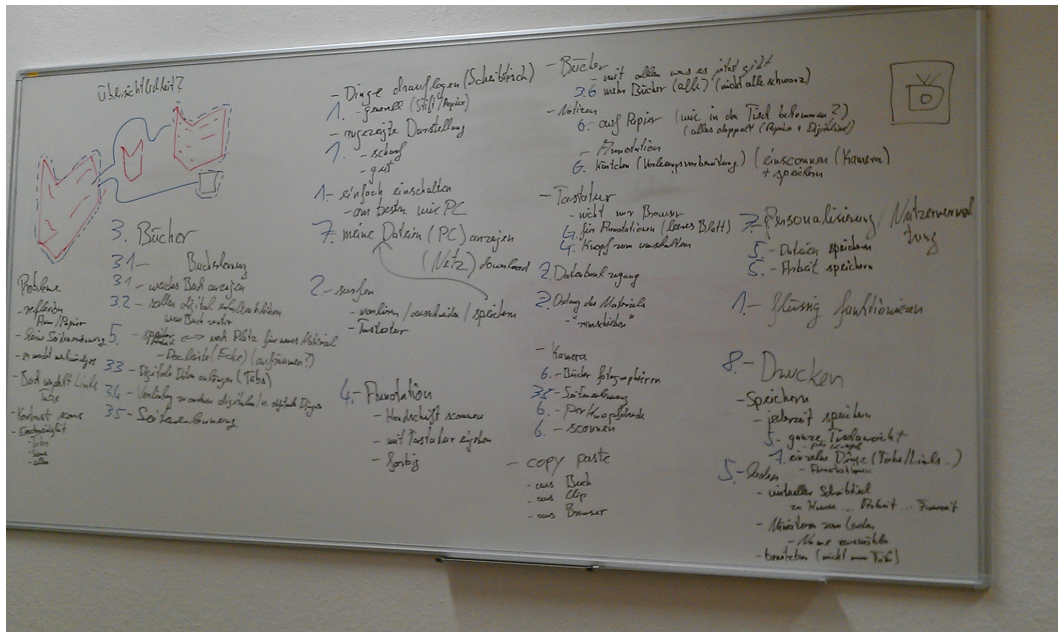 Übersichtlichkeit?
3. Bücher
3.1 - Bucherkennung
3.1 - welches Buch anzeigen
3.2 - sollen digital
5. - speichern <-> noch Platz für neues Material
- Doc leiste (Ecke) (aufräumen?)
3.3 - Digitale Daten anhängen (Tabs)
3.4 - Verlinkung zu anderen digitalen
3.5 - Seitenerkennung
Probleme
- reflexion
Papier
- keine Seitenerkennung
- Buch
Tabs
- Kontrast
- Tabs
- alles
- Dinge drauflegen (Schreibtisch)
1. - generell (Stift/Papier)
- angezeigte Darstellung
1. - scharf
- gut
1. - einfach einschalten
- am besten wie PC
7. - meine Dateien (PC) anzeigen
(Netz) download
2. - surfen
- markieren / ausschneiden / speichern
- Tastatur
4. - Annotation
- Handschrift scannen
- mit Tastatur eingeben
- farbig
- Bücher
- mit allem was es jetzt gibt
3.6 mehr Bücher (alle) (nicht alle schwarz)
- Notizen
6. - auf Papier (wie in den Tisch bekommen?)
(alles doppelt (Papier + Digital))
- Annotation
6. Kärtchen (Vorlesungsvorbereitung) (einscannen (Kamera)
+ speichern
- Tastatur
- nicht nur Browser
4. für Annotationen (leeres Blatt)
4. Knopf zum umschalten
2. Datenbankzugang
2. Ordnung des Materials
- "verschieben"
- Kamera
6. - Bücher fotographieren
3.5 - Seitenerkennung
6. - per Knopfdruck
6. - scannen
- copy paste
- aus Buch
- aus Clip
- aus Browser
7. - Personalisierung / Nutzerverwaltung
5. - Dateien speichern
5. - Arbeit speichern
1. - flüssig funktionieren
8. - Drucken
- Speichern
- jederzeit speichern
5. - ganze Tischansicht
7. einzelne Dinge (Tabs/Links..)
- Annotationen
5. - laden
- virtueller Schreibtisch
zu Hause ... Arbeit ...
- Miniaturen zum Laden
- Name auswählen